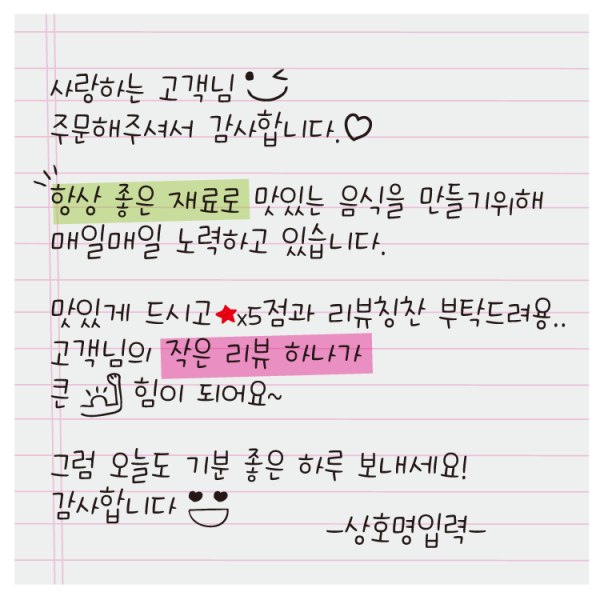 사랑하는 고객님
주문해주셔서 감사합니다.♡
항상 좋은 재료로 맛있는 음식을 만들기위해
매일매일 노력하고 있습니다.
맛있게 드시고★x5점과 리뷰칭찬 부탁드려용..
고객님의 작은 리뷰 하나가
큰 힘이 되어요~
그럼 오늘도 기분 좋은 하루 보내세요!
감사합니다
-상호명입력-